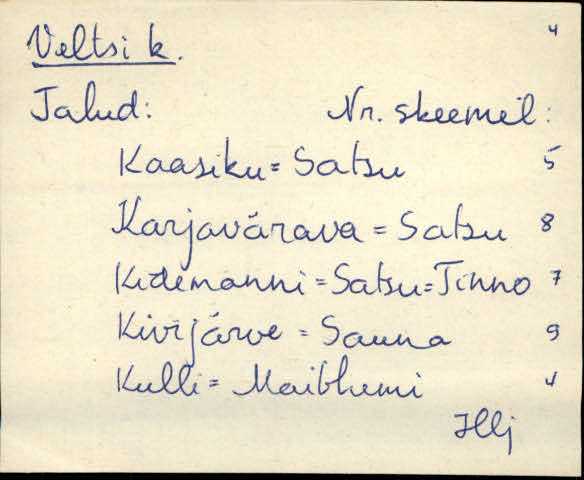 Veltsi k. 4
Talud: Nr. skeemil:
Kaasiku = Satsu 5
Karjavärava = Satsu 8
Kidemanni = Satsu = Tinno 7
Kivijärve = Sauna 9
Kulli = Maibhumi 4